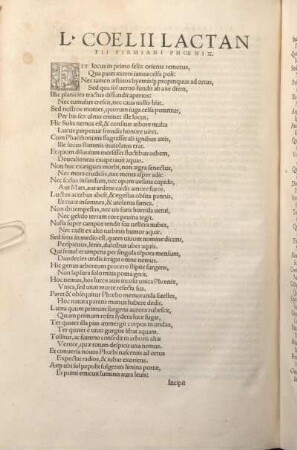 L. COELII LACTAN
TII FIRMIANI PHOENIX.
EST locus in primo felix oriente remotus,
Qua patet æterni ianua celsa poli:
Nec tamen æstiuos hyemisq; propinquus ad ortus,
Sed qua sol uerno fundit ab axe diem,
Illic planicies tractus diffundit apertos:
Nec tumulus crescit, nec caua uallis hiat.
Sed nostros montes, quorum iuga celsa putantur,
Per bis sex ulnas eminet ille locus.
Hic Solis nemus est, & consitus arbore multa
Lucus perpetuæ frondis honore uirens.
Cum Phaethonteis flagrasset ab ignibus axis,
Ille locus flammis inuiolatus erat.
Et quum diluuium mersisset fluctibus orbem,
Deucalioneas exuperauit aquas.
Non huc exangues morbi, non ægra senectus,
Nec mors crudelis, nec metus asper adit:
Nec scelus infandum, nec opum uesana cupido,
Aut Mars, aut ardens cædis amore furor.
Luctus acerbus abest, & egestas obsita pannis,
Et curæ insomnes, & uiolenta fames.
Non ibi tempestas, nec uis furit horrida uenti,
Nec gelido terram rore pruina tegit.
Nulla super campos tendit sua uellera nubes,
Nec cadit ex alto turbidus humor aquæ.
Sed fons in medio est, quem uiuum nomine dicunt,
Perspicuus, lenis, dulcibus uber aquis.
Qui semel erumpens per singula tempora mensum,
Duodecies undis irrigat omne nemus.
Hic genus arboreum procero stipite surgens,
Non lapsura solo mitia poma gerit.
Hoc nemus, hos lucos auis incolit unica Phœnix,
Vnica, sed uiuit morte refecta sua.
Paret & obsequitur Phœbo memoranda satelles,
Hoc natura parens munus habere dedit.
Lutea quum primum surgens aurora rubescit,
Quum primum rosea sydera luce fugat,
Ter quater illa pias immergit corpus in undas,
Ter quater è uiuo gurgite libat aquam.
Tollitur, ac summo considit in arboris altæ
Vertice, quæ totum despicit una nemus.
Et conuersa nouos Phœbi nascentis ad ortus
Expectat radios, & iubar exoriens.
Atq; ubi sol pepulit fulgentis limina portæ,
Et primi emicuit luminis aura leuis:
Incipit